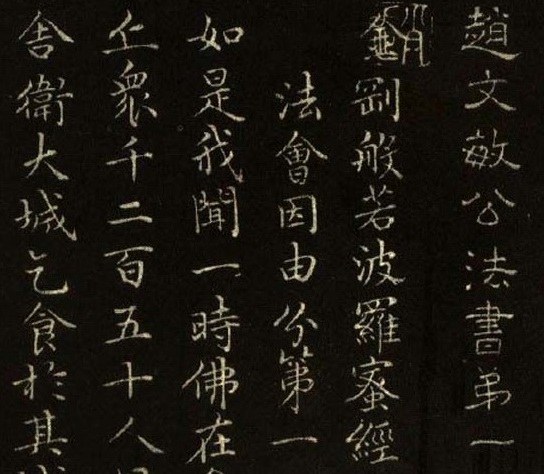 趙文敏公法書弟一
金剛般若波羅蜜經
法會因由分第一
如是我聞一時佛在
丘衆千二百五十人
舍衛大城乞食於其